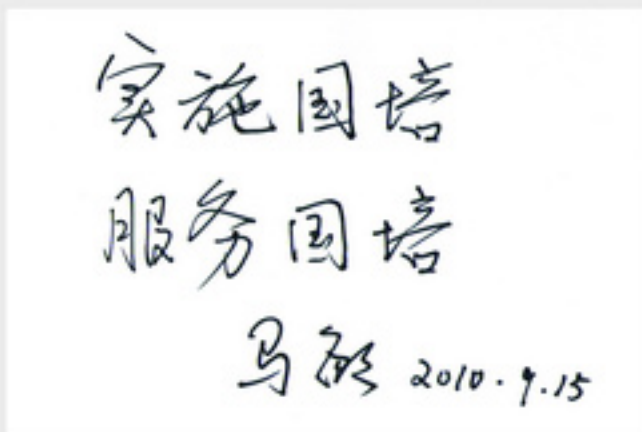 实施国培
服务国培
马敏 2010.9.15